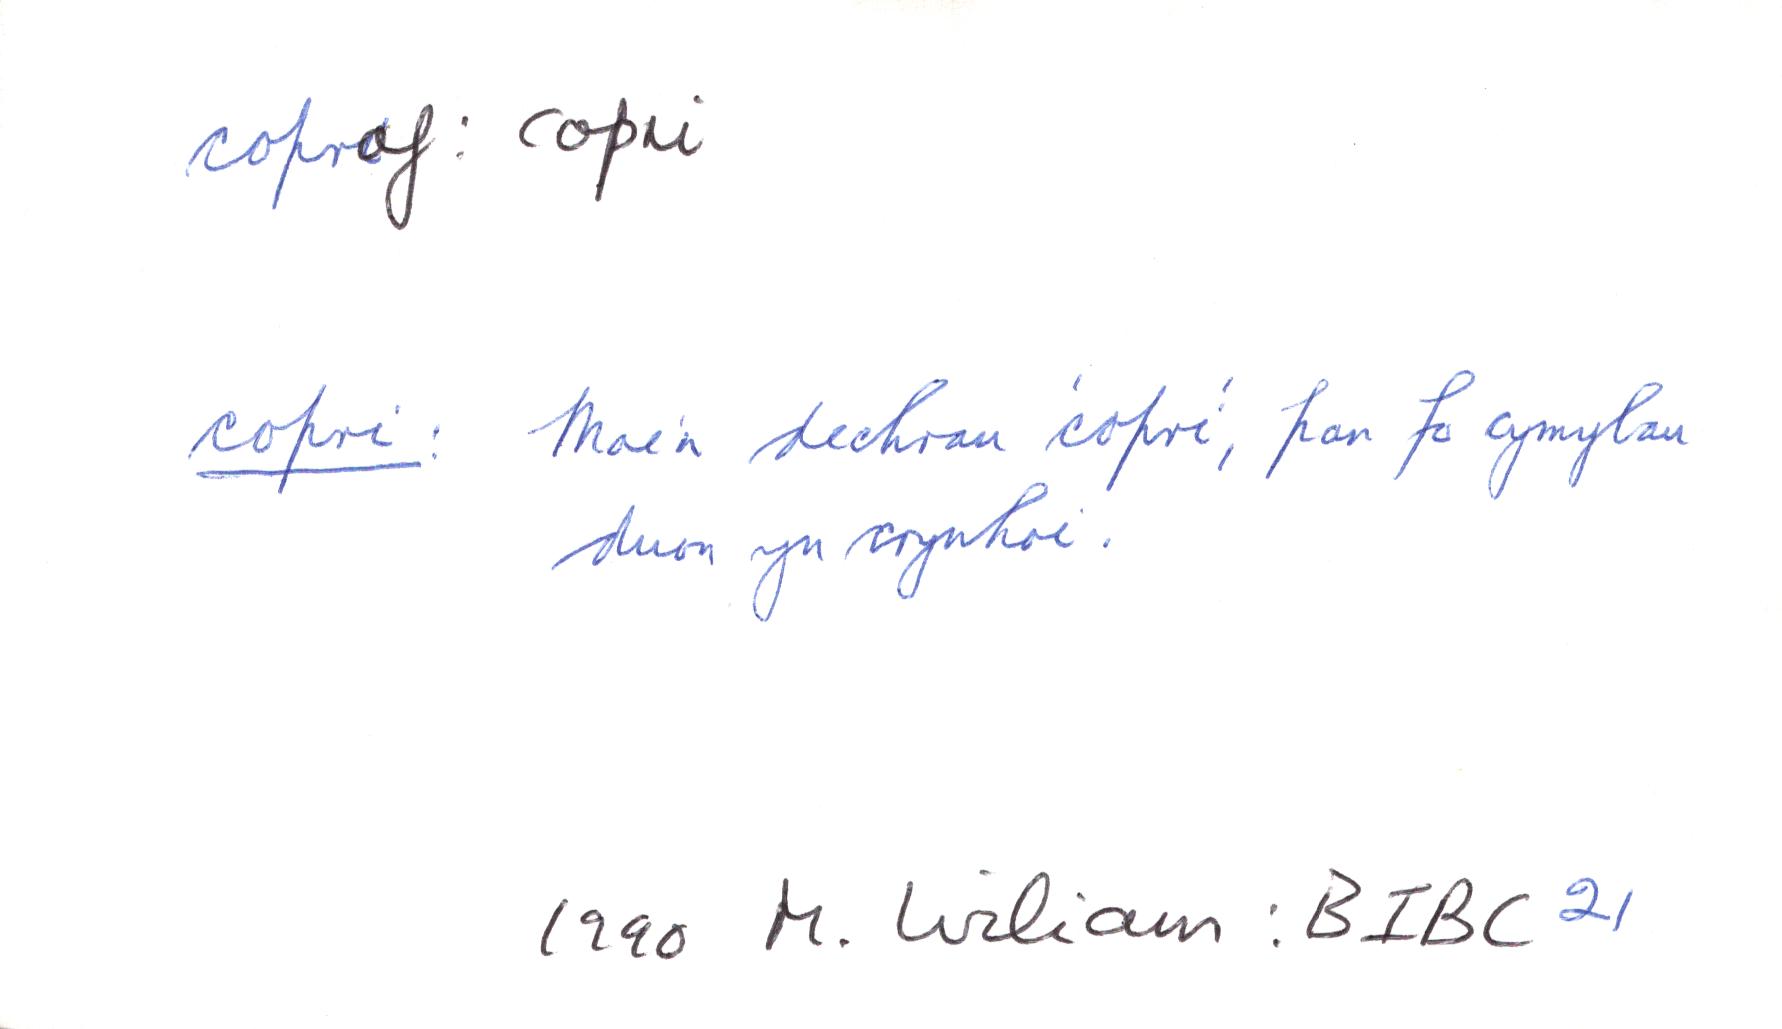 copraf: copri
copri: Mae'n dechrau 'copri', pan fo cymylau
duon yn crynhoi.
1990 M. Wiliam: BIBC 21